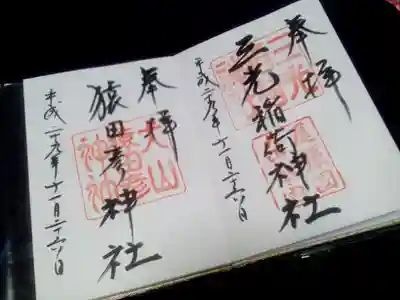 奉拝
三光稲荷神社
平成二十九年十一月二十六日
奉拝
犬山
猿田彦
神社
猿田彦神社
平成二十九年十一月二十六日